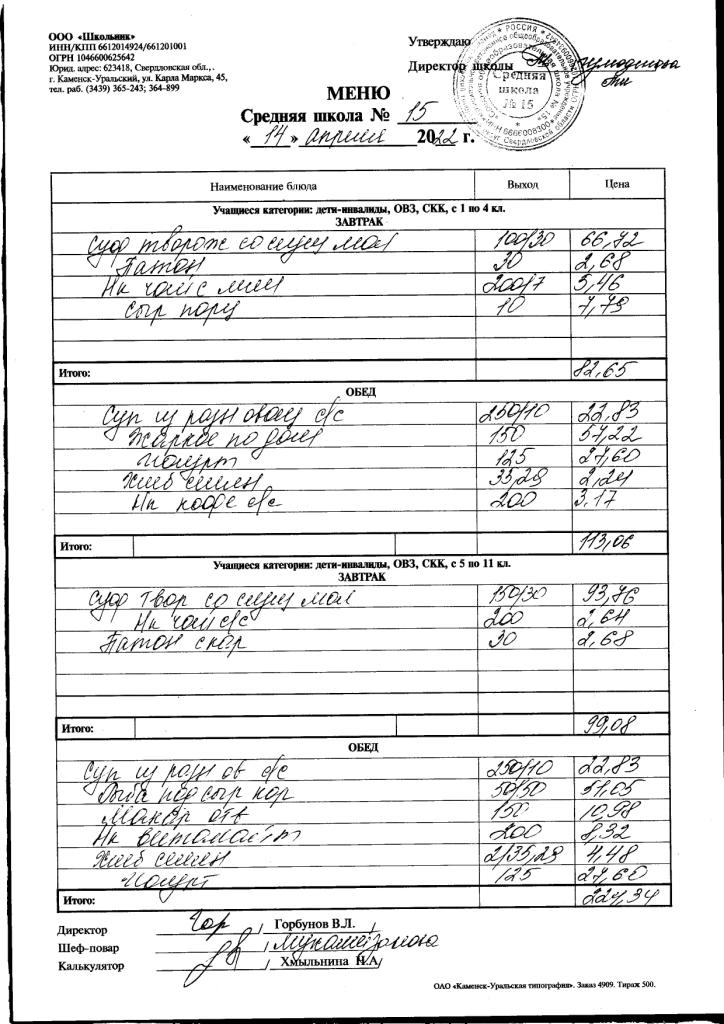 ООО «Школьник»
ИНН/КПП 6612014924/661201001
ОГРН 1046600625642
Юрид. адрес: 623418, Свердловская обл., .
г. Каменск-Уральский, ул. Карла Маркса, 45,
тел. раб. (3439) 365-243; 364-899
Утверждаю
Директор школы
Средняя
школа
№ 15
МЕНЮ
Средняя школа № 15
« 14 » апреля 2022 г.
Наименование блюда Выход Цена
Учащиеся категории: дети-инвалиды, ОВЗ, СКК, с 1 по 4 кл.
ЗАВТРАК
Суф творож со сгущ мол 100/30 66,72
Батон 30 2,68
Нк чай с лим 200/7 5,46
Сыр порц 10 7,79
Итого: 82,65
ОБЕД
Суп из разн овощ с/с 250/10 22,83
Жаркое по дом 150 57,22
Йогурт 125 27,60
Хлеб 33,29 2,24
Нк кофе с/с 200 3,17
Итого: 113,06
Учащиеся категории: дети-инвалиды, ОВЗ, СКК, с 5 по 11 кл.
ЗАВТРАК
Суф твор со сгущ мол 150/30 93,76
Нк чай с/с 200 2,64
Батон 30 2,68
Итого: 99,08
ОБЕД
Суп из разн ов с/с 250/10 22,83
Рыба под сыр кор 50/50 51,05
Макар отв 150 10,98
Нк витолайт 200 8,32
Хлеб 4,48
Йогурт 125 27,60
Итого:
Директор / Горбунов В.Л. /
Шеф-повар /
Калькулятор / Хмыльнина Н.А/
ОАО «Каменск-Уральская типография». Заказ 4909. Тираж 500.